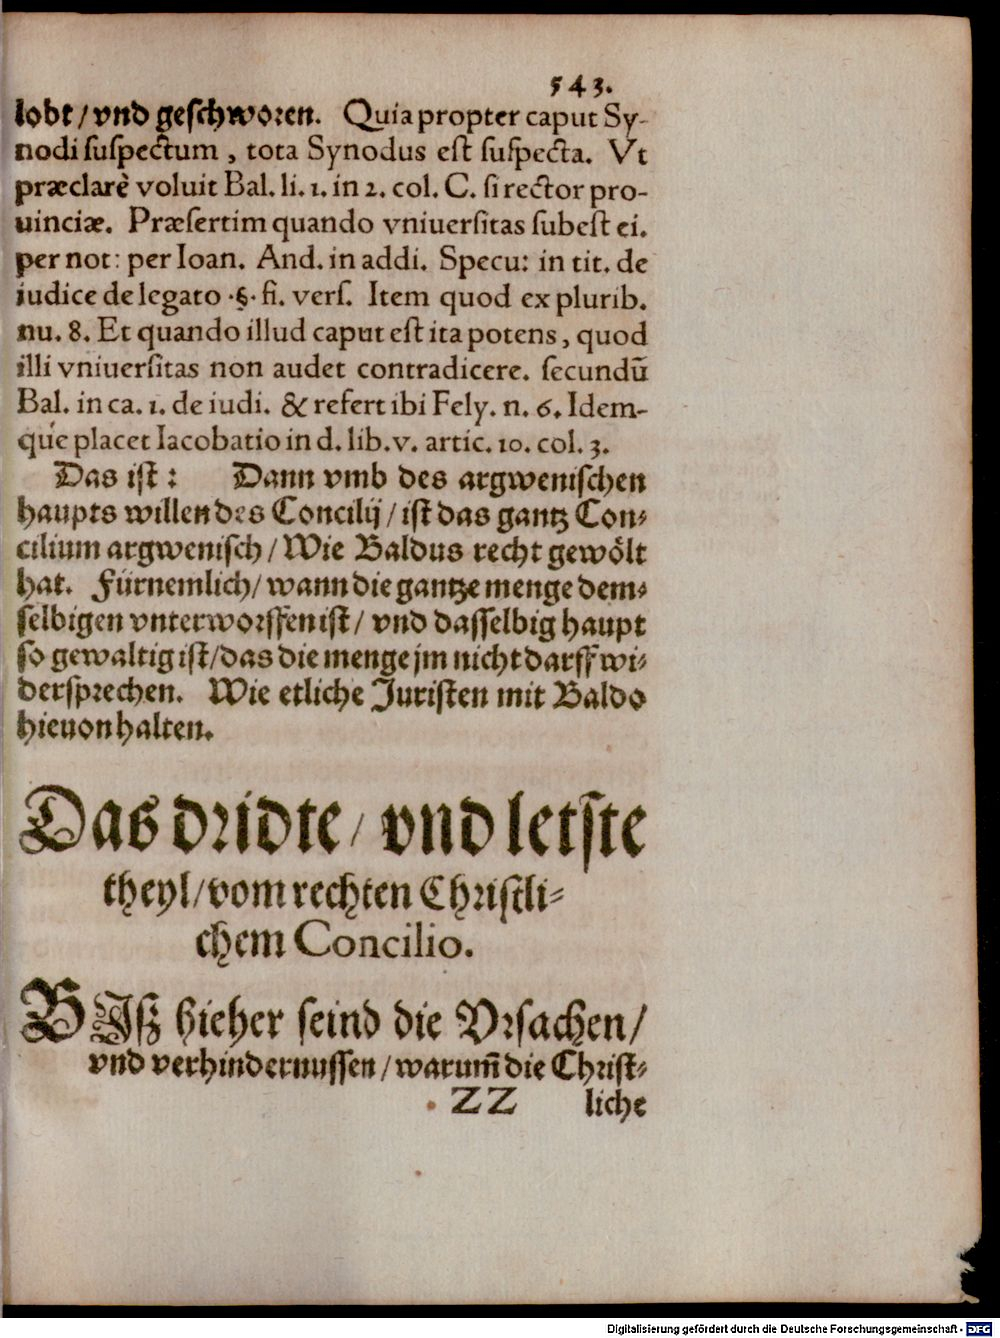 543.
lobt / vnd geſchworen. Quia propter caput Sy-
nodi ſuſpectum , tota Synodus eſt ſuſpecta. Vt
præclarè voluit Bal. li. 1. in 2. col. C. ſi rector pro-
uinciæ. Præſertim quando vniuerſitas ſubeſt ei.
per not: per Ioan. And. in addi. Specu: in tit. de
iudice delegato ·§· fi. verſ. Item quod ex plurib.
nu. 8. Et quando illud caput eſt ita potens , quod
illi vniuerſitas non audet contradicere. ſecundũ
Bal. in ca. 1. de iudi. & refert ibi Fely. n. 6. Idem-
qúe placet Iacobatio in d. lib. v. artic. 10. col. 3.
Das iſt : Dann vmb des argweniſchen
haupts willen des Concilij / iſt das gantz Con-
cilium argweniſch / Wie Baldus recht gewölt
hat. Fürnemlich / wann die gantze menge dem-
ſelbigen vnterworffen iſt / vnd daſſelbig haupt
ſo gewaltig iſt / das die menge jm nicht darff wi-
derſprechen. Wie etliche Juriſten mit Baldo
hieuon halten.
Das dridte / vnd letſte
theyl / vom rechten Chriſtli-
chem Concilio.
BIſz hieher ſeind die Vrſachen /
vnd verhindernuſſen / warum̃ die Chriſt-
ZZ liche
Digitalisierung gefördert durch die Deutsche Forschungsgemeinschaft - DFG